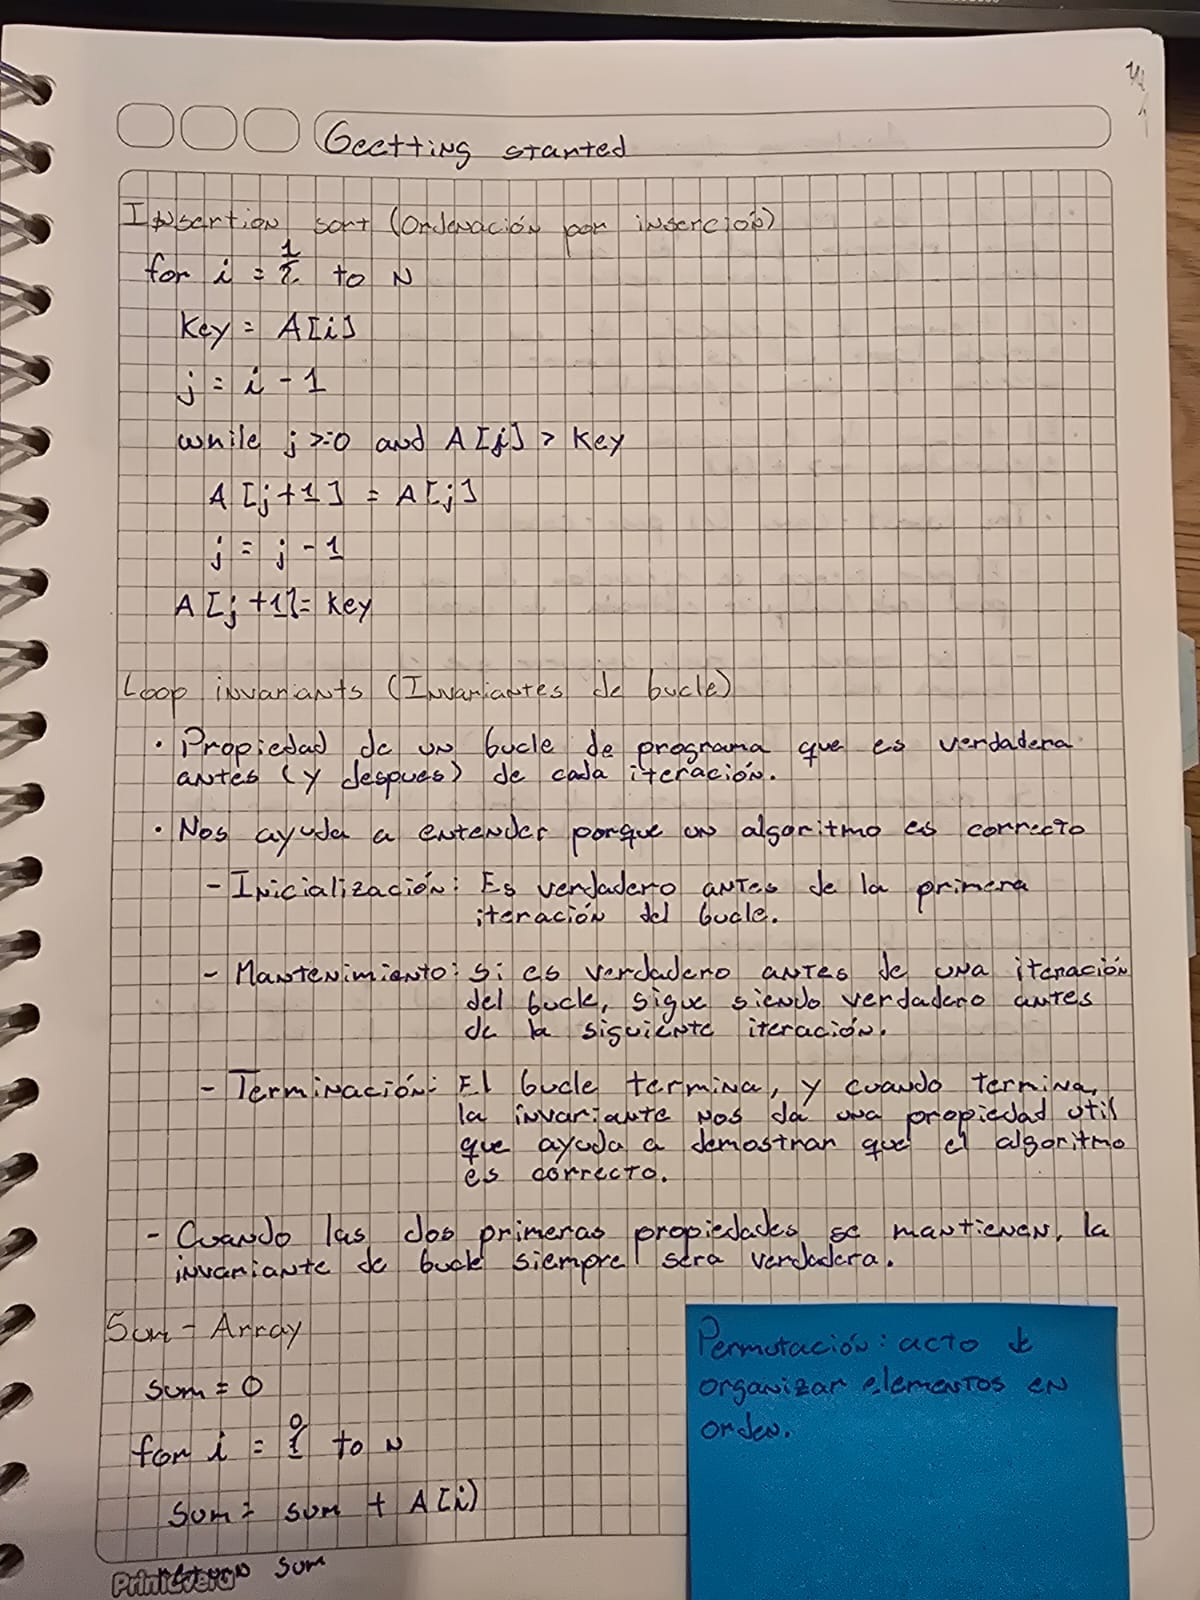 Geetting started
Insertion sort (Ordenación por inserción)
for i = 1 to N
Key = A[i]
j = i - 1
while j >= 0 and A[j] > Key
A[j+1] = A[j]
j = j - 1
A[j+1] = Key
Loop invariants (Invariantes de bucle)
· Propiedad de un bucle de programa que es verdadera
antes (y despues) de cada iteración.
· Nos ayuda a entender porque un algoritmo es correcto
- Inicialización: Es verdadero antes de la primera
iteración del bucle.
- Mantenimiento: si es verdadero antes de una iteración
del bucle, sigue siendo verdadero antes
de la siguiente iteración.
- Terminación: El bucle termina, y cuando termina,
la invariante nos da una propiedad util
que ayuda a demostrar que el algoritmo
es correcto.
- Cuando las dos primeras propiedades se mantienen, la
invariante de bucle siempre sera verdadera.
Sum - Array
sum = 0
for i = 0 to N
sum = sum + A[i]
return sum
PrimaVera
Permutación: acto de
organizar elementos en
orden.